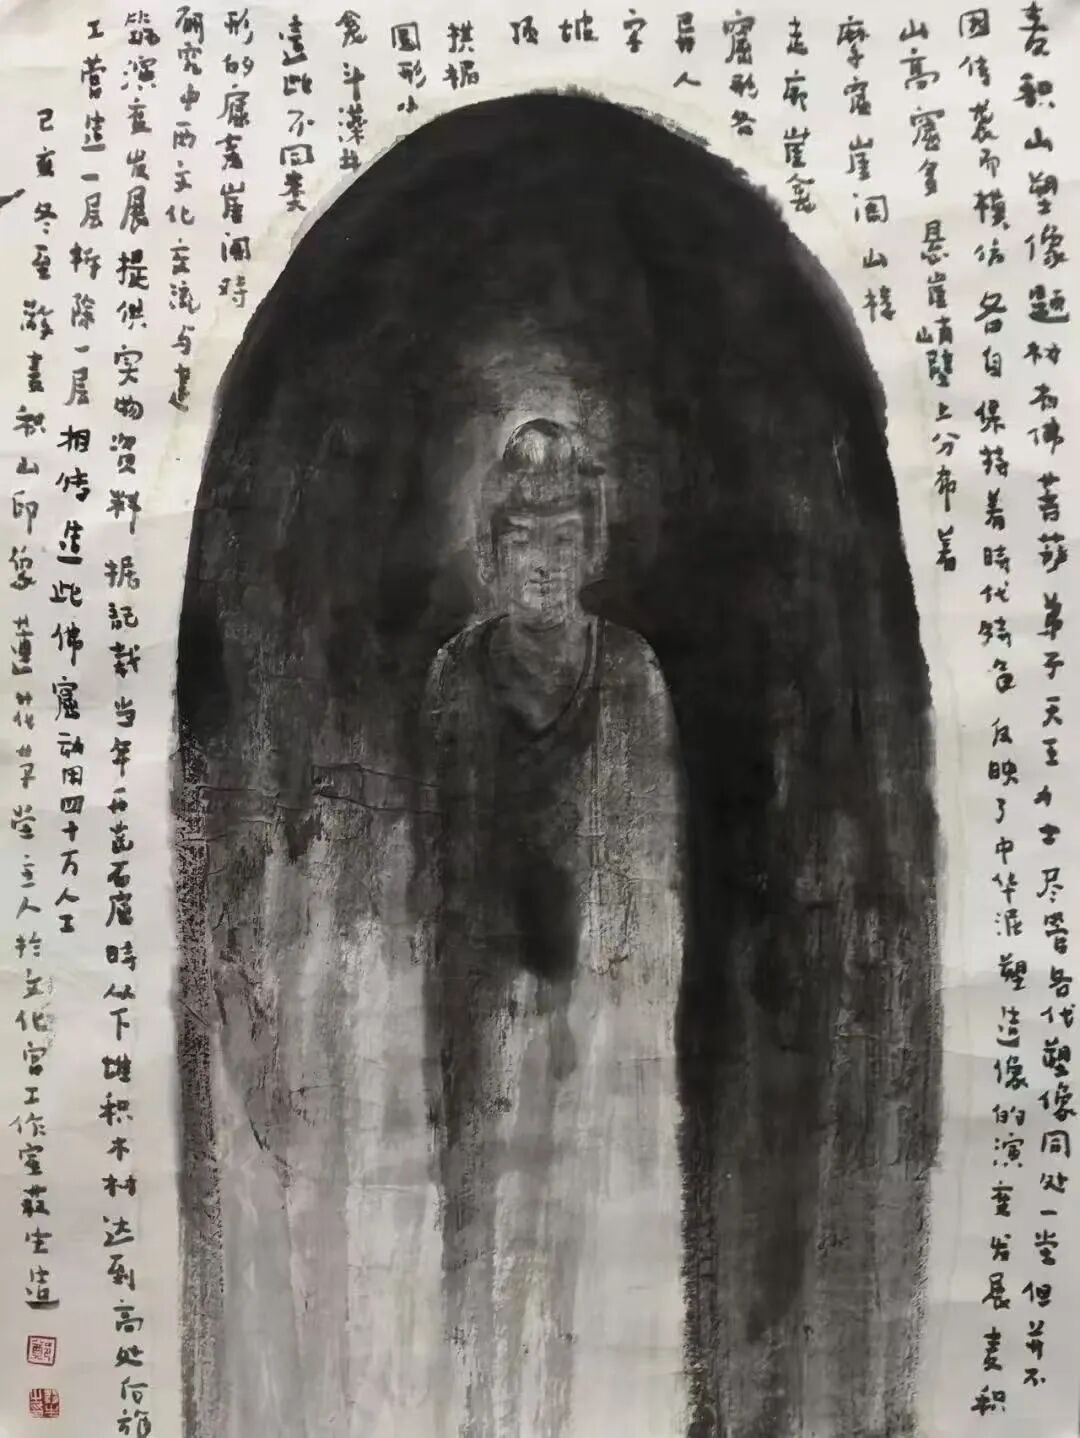 麦积山塑像题材有佛菩萨弟子天王力士尽管各代塑像同处一堂但并不
因传袭而模仿各自保持着時代特色反映了中华泥塑造像的演变发展麦积
山高窟多悬崖峭壁上分布着
摩窟崖阁山楼
走廊崖龛
窟形各
异人
字
坡
顶
拱楣
圆形小
龛斗藻井
造此不同类
形的窟龛崖阁時
研究中西文化交流与建
筑演变发展提供实物资料据记载当年开凿石窟時从下堆积木材达到高处
工营造一层拆除一层相传造此佛窟动用四十万人工
己亥冬至麦积山印象莲花草堂主人於文化宫工作室莊生造